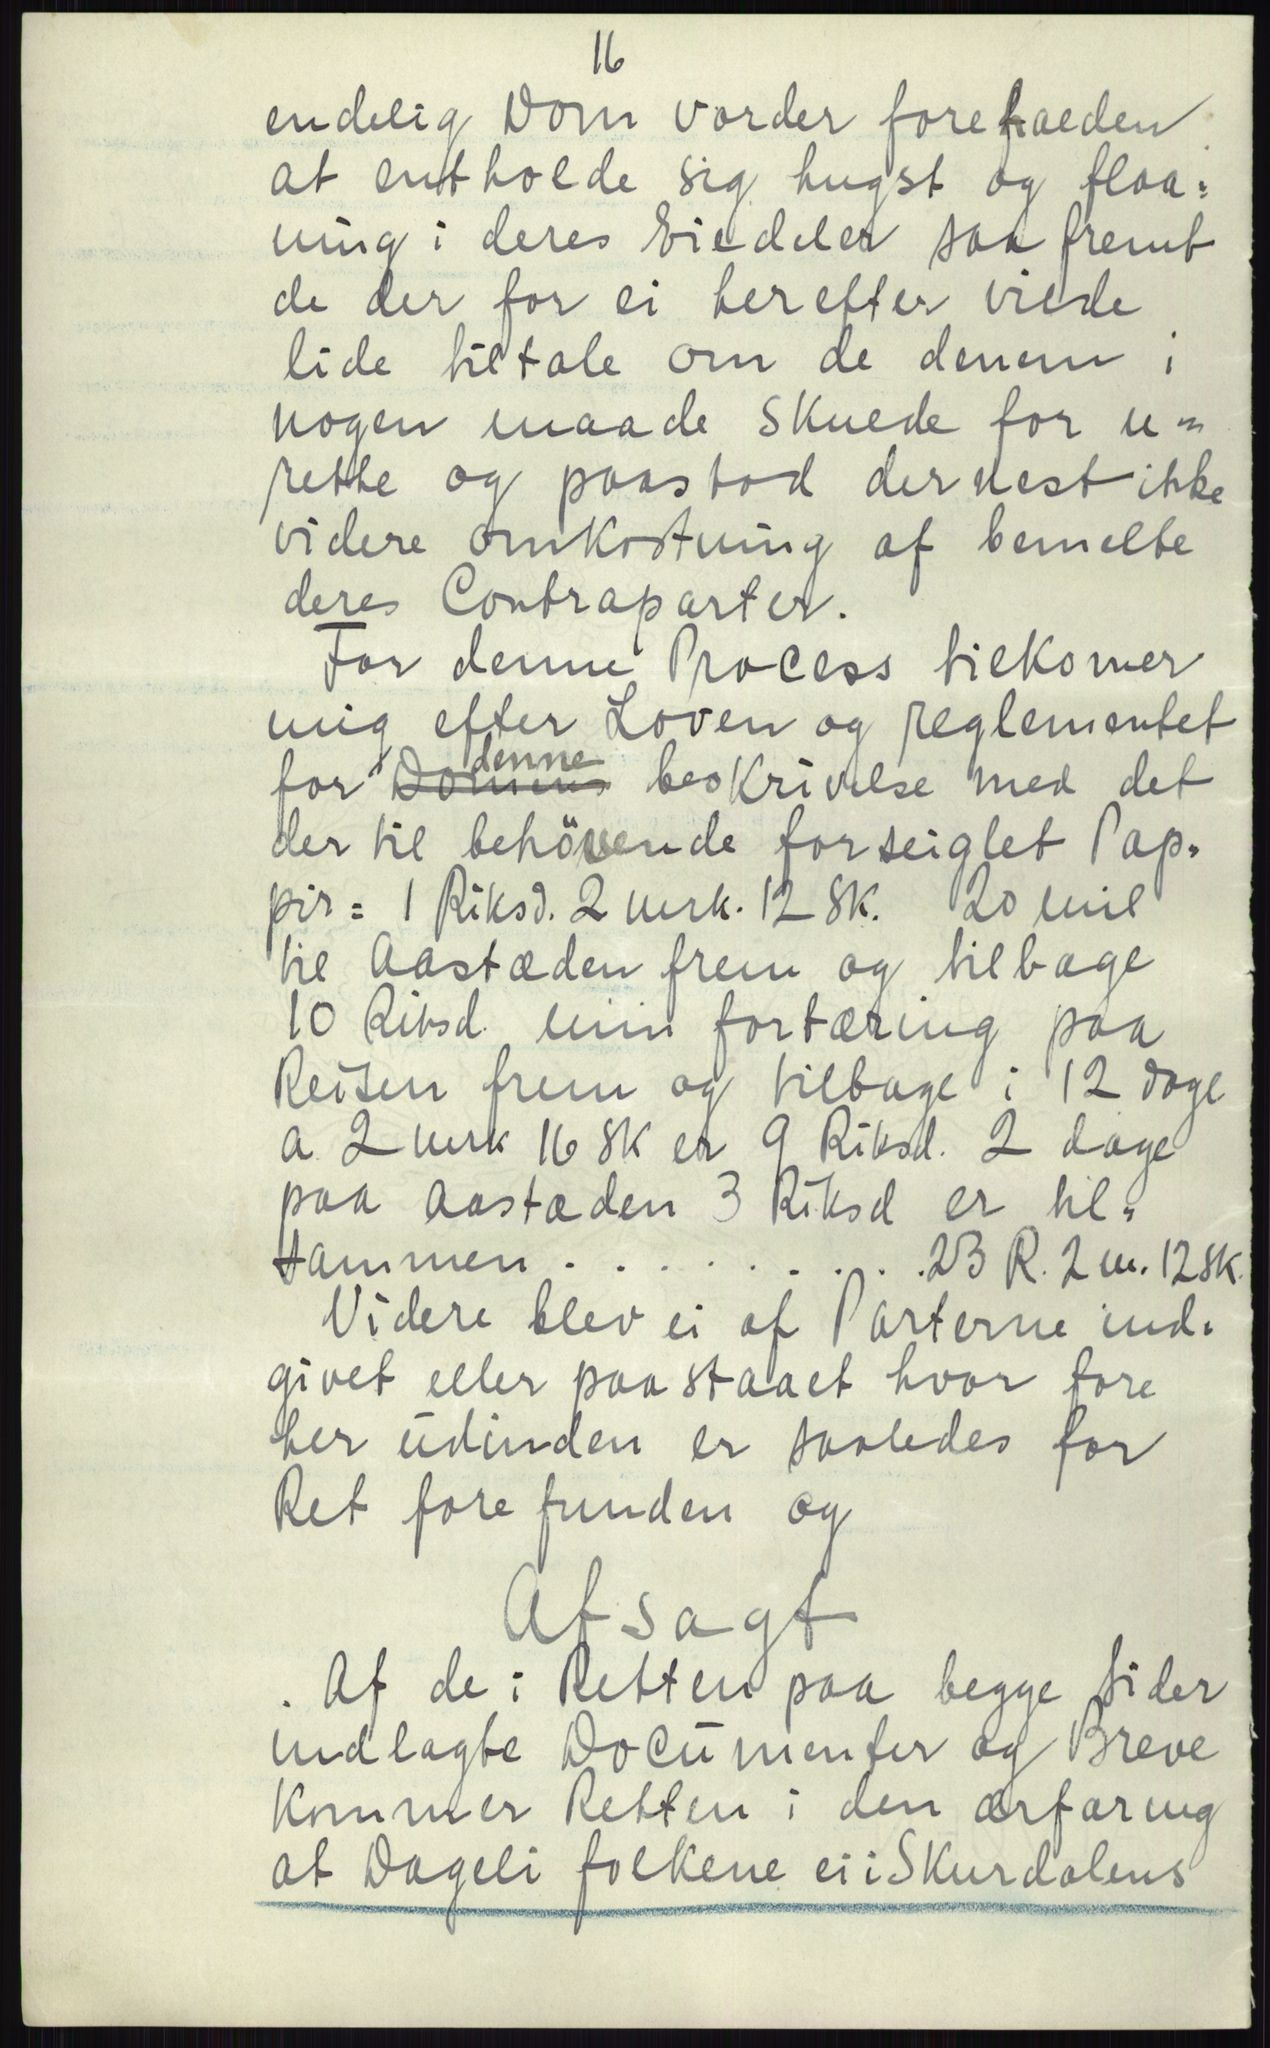 16
endelig Dom vorder foreholden
at entholde sig hugst og flaa=
ning i deres Eiedeler saa fremt
de der for ei herefter vilde
lide tiltale om de denem i
nogen maade skulde for u=
rette og paastod dernest ikke
videre omkostning af bemelte
deres Contraparter.
For denne Process tilkomer
mig efter Loven og reglementet
for Domens denne beskrivelse med det
der til behövende forseiglet Pap=
pir = 1 Riksd. 2 mrk. 12 sk. 20 mil
til Aastæden frem og tilbage
10 Riksd. min fortæring paa
Reisen frem og tilbage i 12 dage
a 2 mrk 16 sk er 9 Riksd. 2 dage
paa Aastæden 3 Riksd er til=
sammen . . . . . . . . . 23 R. 2 m. 12 sk.
Videre blev ei af Parterne ind=
givet eller paastaaet hvor fore
her udinden er saaledes for
Ret fore funden og
Afsagt
. Af de i Retten paa begge sider
indlagte Documenter og Breve
kommer Retten i den ærfaring
at Dageli folkene ei i Skurdalens